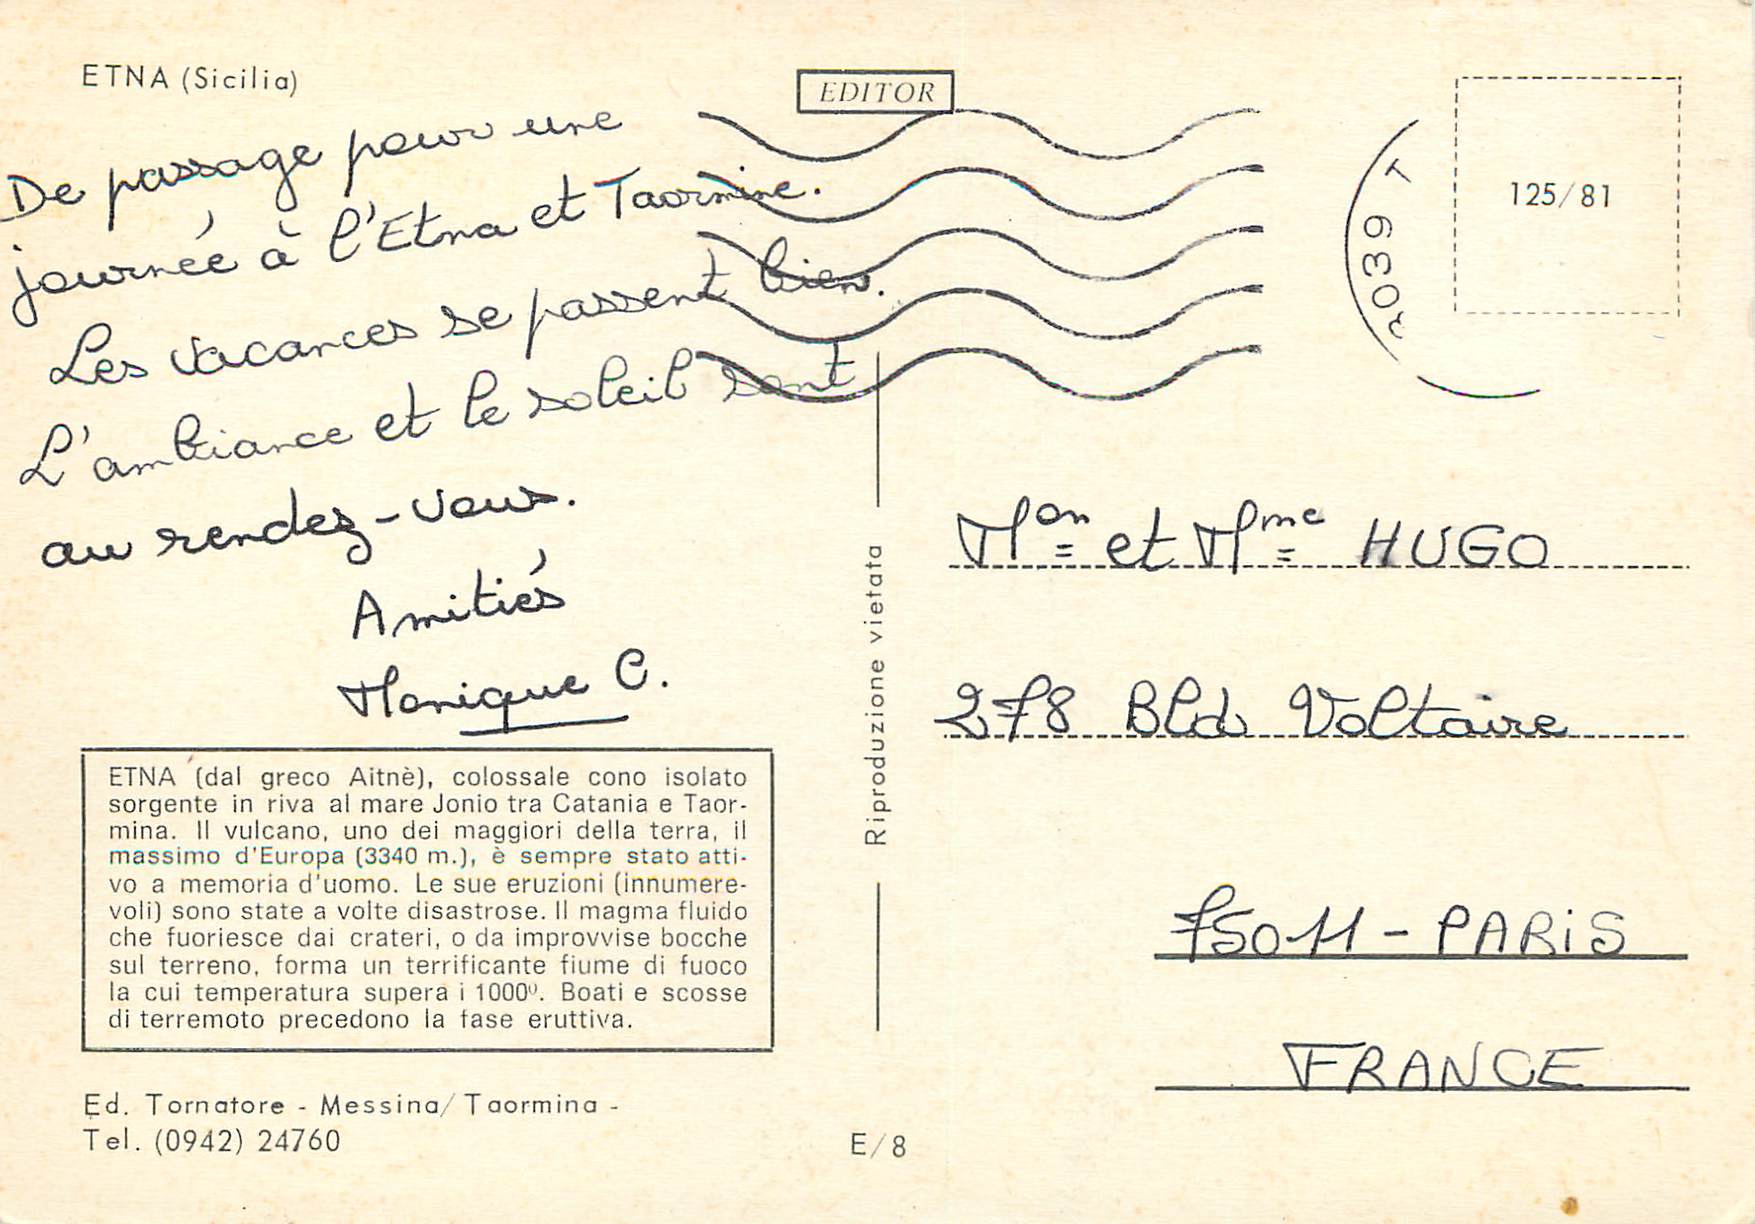 ETNA (Sicilia)
EDITOR
De passage pour une
journée à l'Etna et Taormine.
Les vacances se passent bien.
L'ambiance et le soleil sont
au rendez-vous.
Amitiés
Monique C.
ETNA (dal greco Aitnè), colossale cono isolato
sorgente in riva al mare Jonio tra Catania e Taor-
mina. Il vulcano, uno dei maggiori della terra, il
massimo d'Europa (3340 m.), è sempre stato atti-
vo a memoria d'uomo. Le sue eruzioni (innumere-
voli) sono state a volte disastrose. Il magma fluido
che fuoriesce dai crateri, o da improvvise bocche
sul terreno, forma un terrificante fiume di fuoco
la cui temperatura supera i 1000º. Boati e scosse
di terremoto precedono la fase eruttiva.
Ed. Tornatore - Messina/Taormina -
Tel. (0942) 24760
E/8
Riproduzione vietata
125/81
Mon et Mme HUGO
278 Bld Voltaire
75011 - PARIS
FRANCE